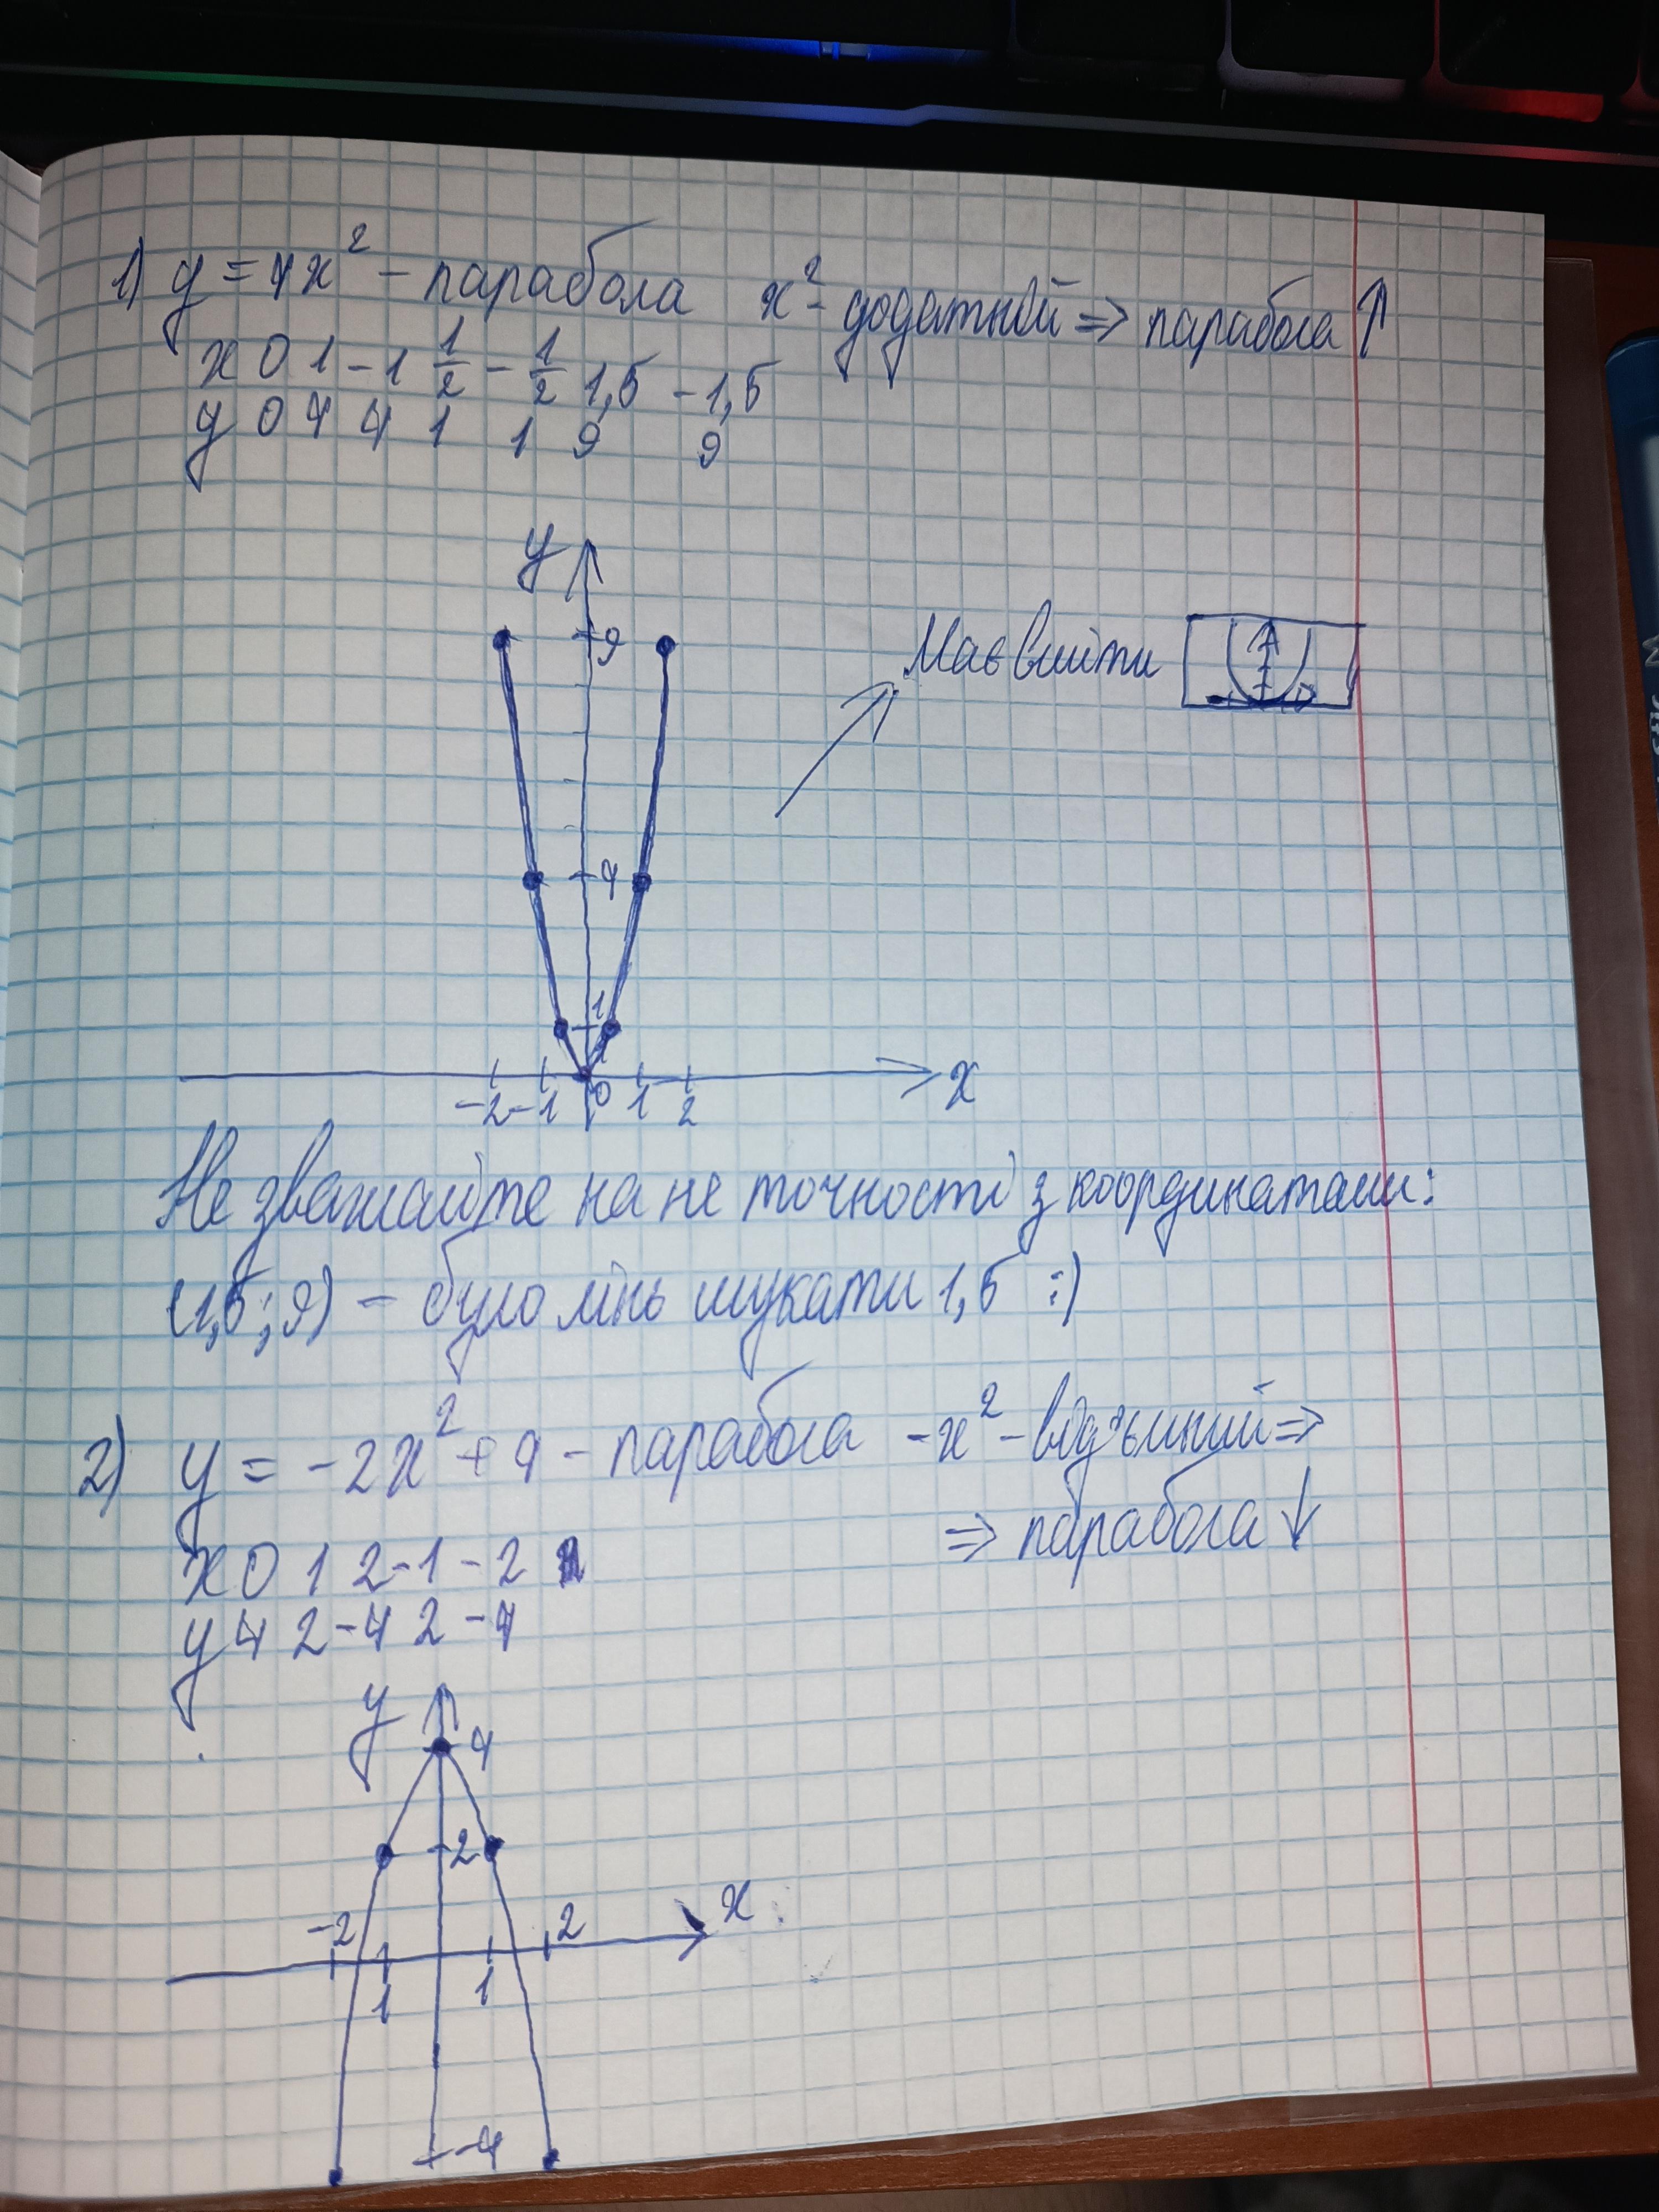 1) y = 4x² - парабола x² - додатний => парабола ↑
x 0 1 -1 1/2 -1/2 1,5 -1,5
y 0 4 4 1 1 9 9
y
9
Має вийти
4
1
-2 -1 0 1 2 x
Не зважайте на не точності з координатами:
(1,5; 9) - було лінь шукати 1,5 :)
2) y = -2x² + 4 - парабола -x² - від'ємний =>
=> парабола ↓
x 0 1 2 -1 -2
y 4 2 -4 2 -4
y
4
2
-2 2 x
1 1
-4